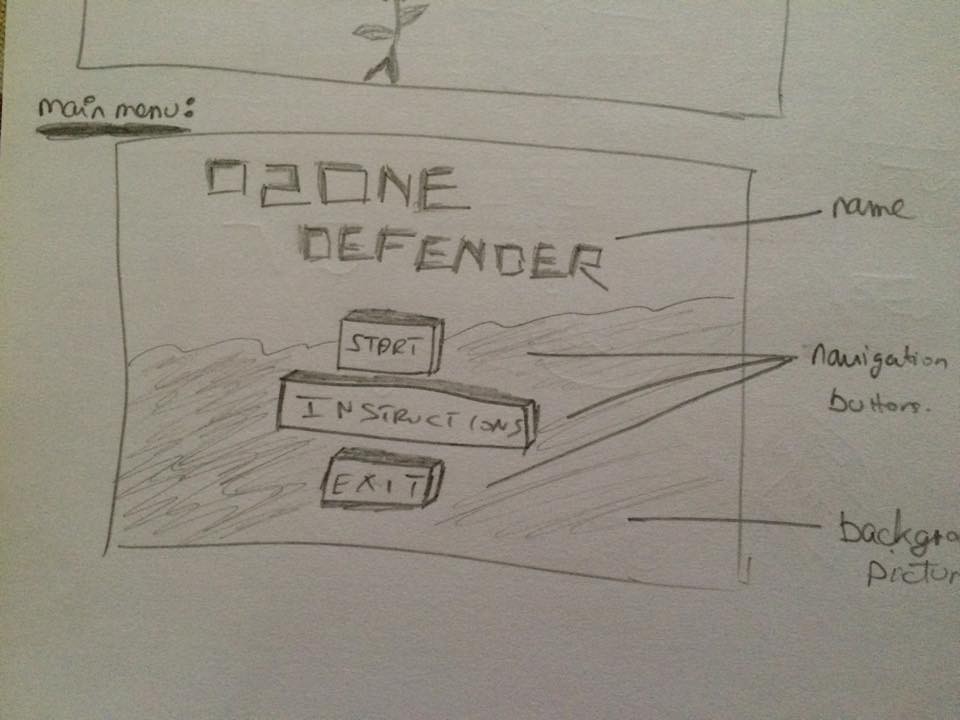 main menu:
OZONE
DEFENDER
name
START
INSTRUCTIONS
EXIT
navigation
buttons.
backgro
pictur